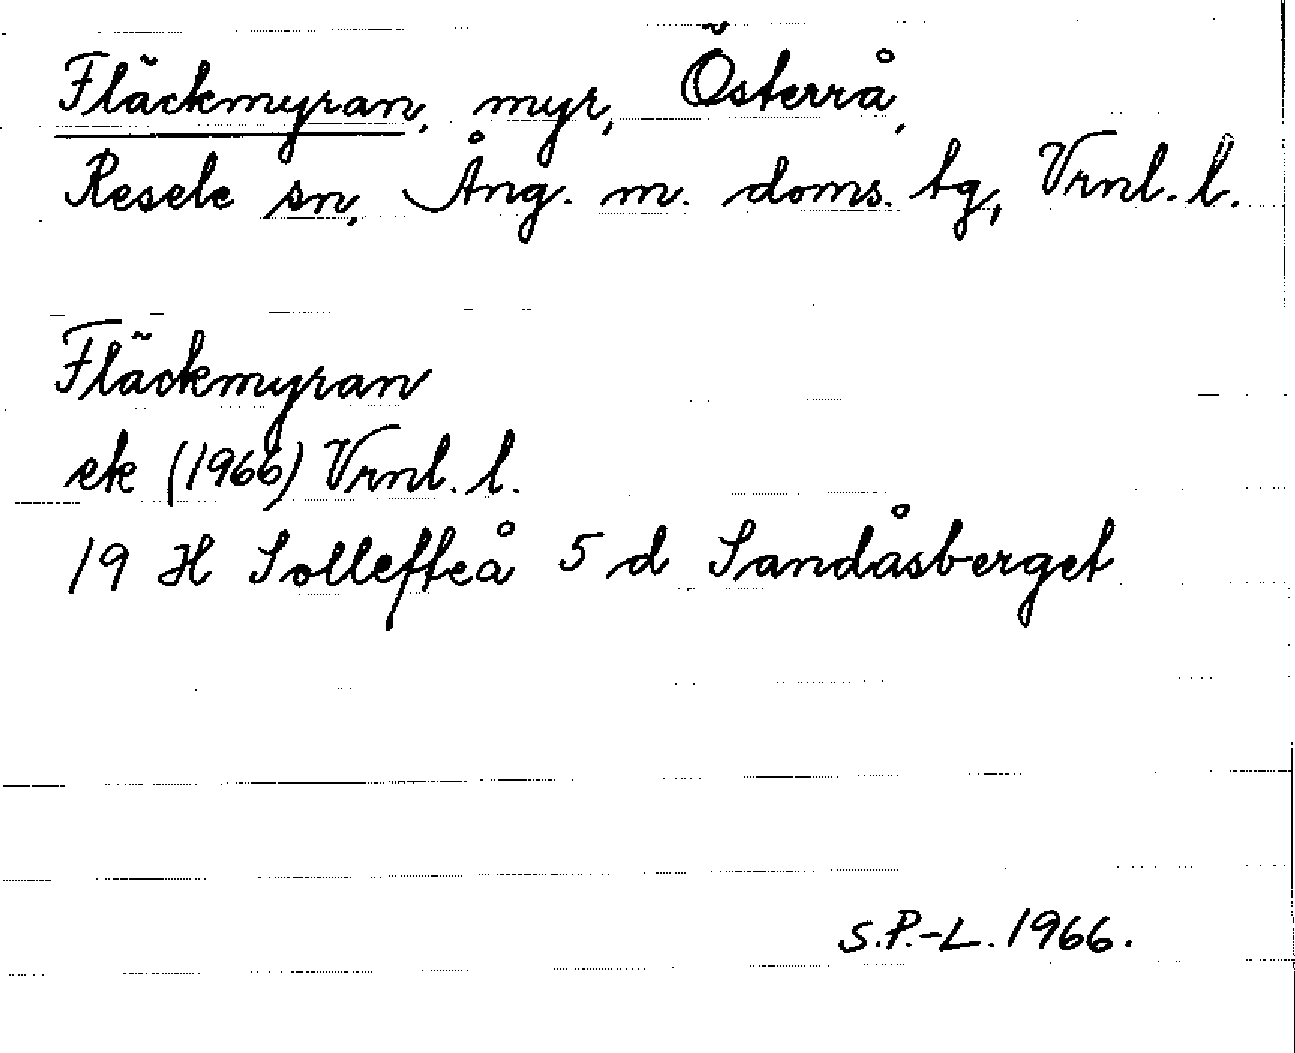 Fläckmyran, myr, Österrå,
Resele sn, Ång. m. doms. tg, Vrnl. l.
Fläckmyran
ek (1966) Vrnl. l.
19 H Sollefteå 5 d Sandåsberget
S.P.-L. 1966.